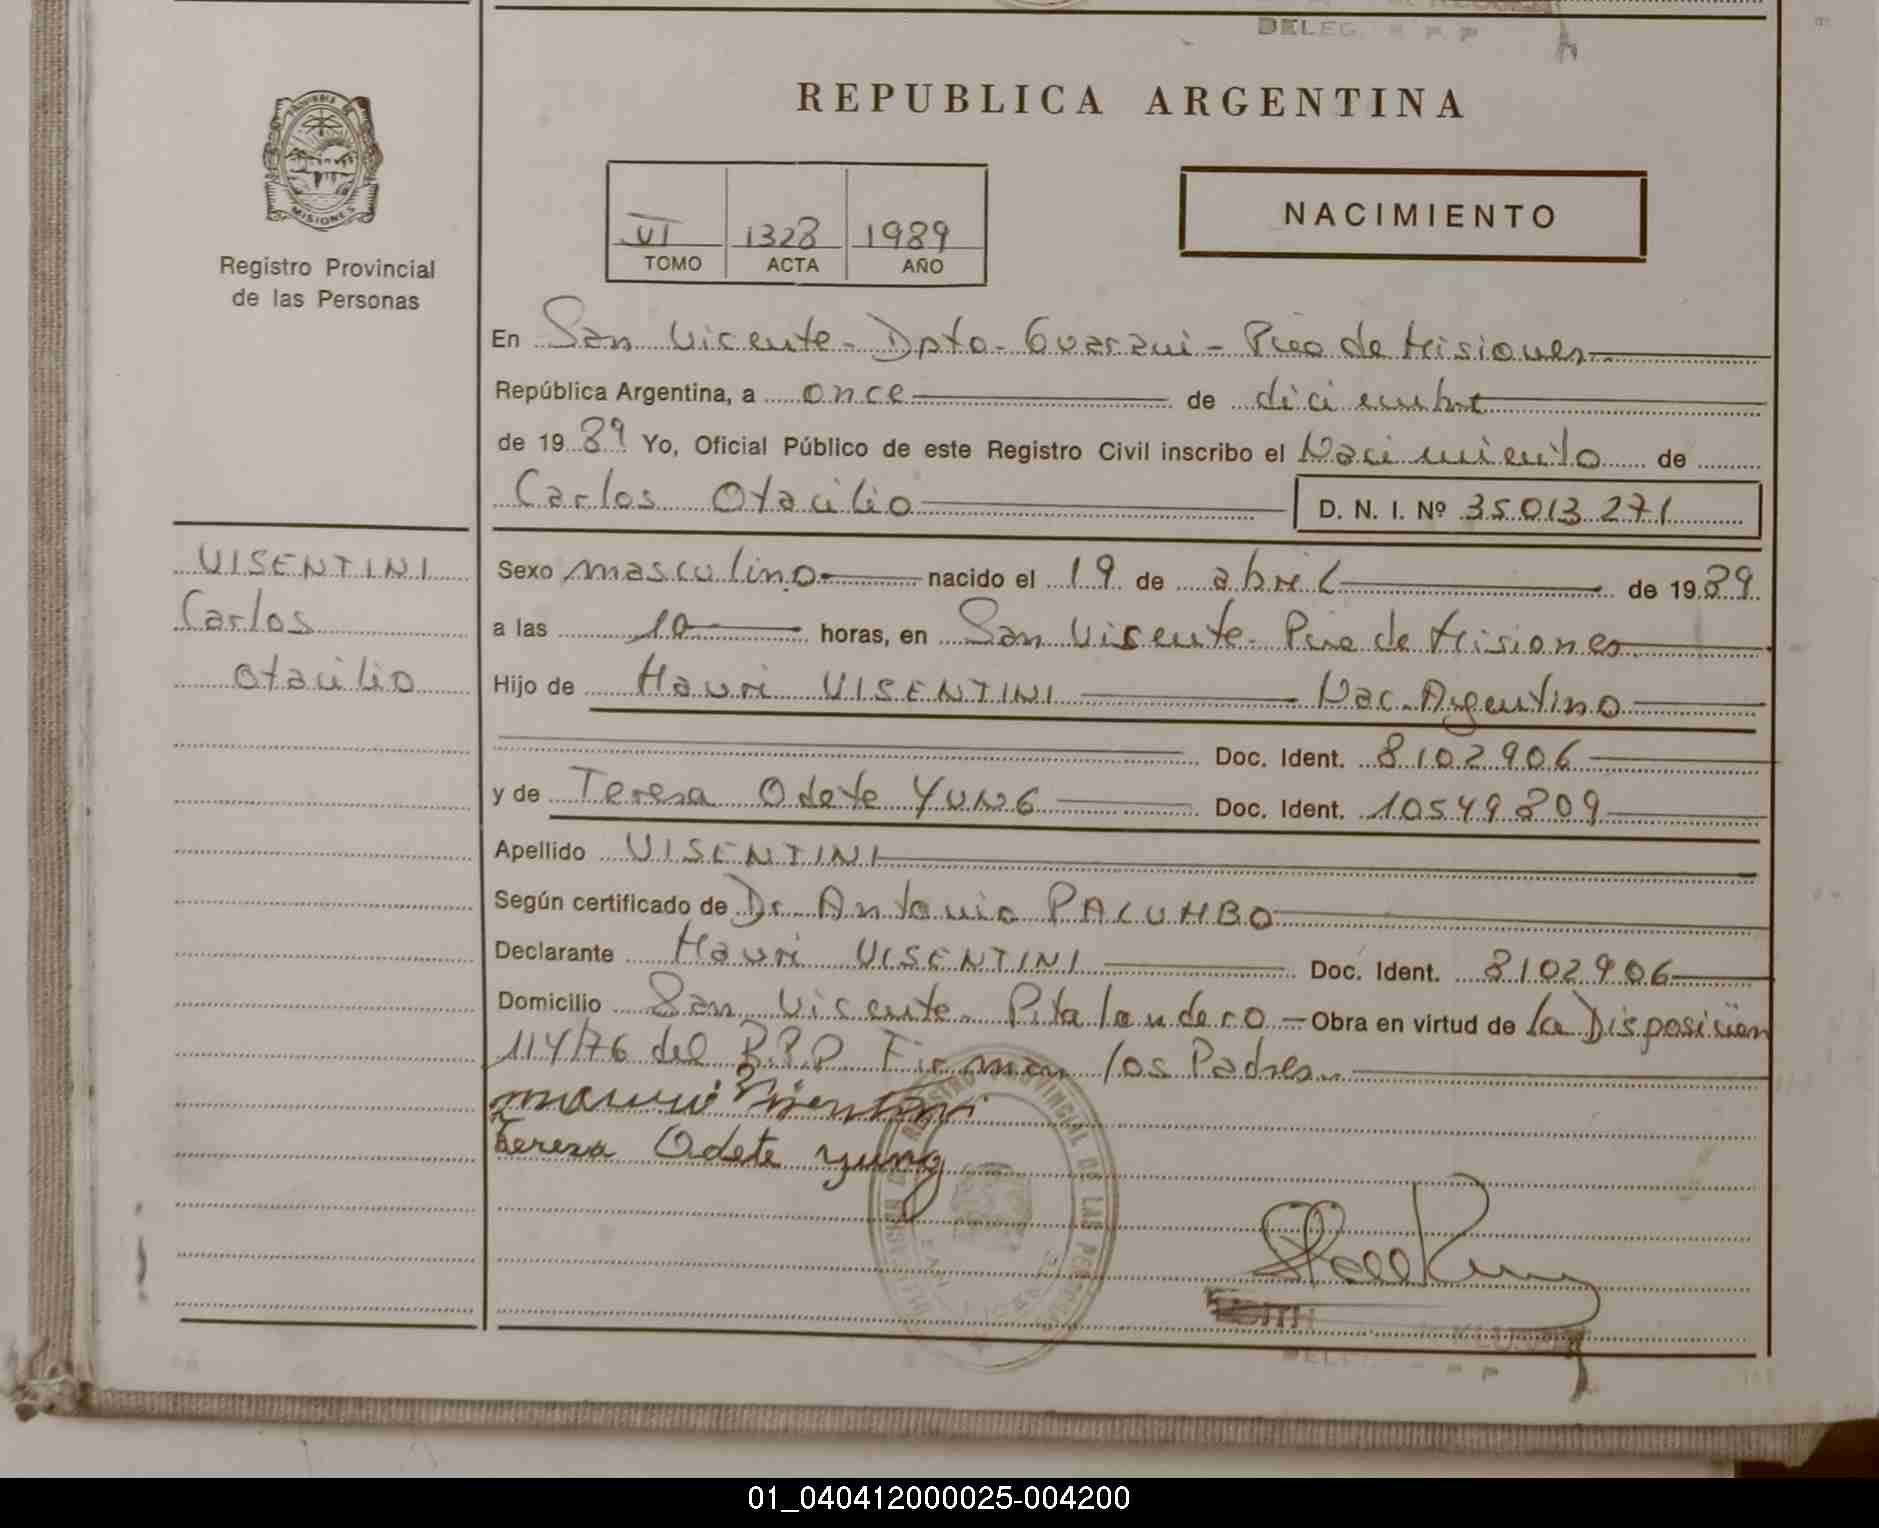 DELEG. R P P
REPUBLICA ARGENTINA
MISIONES
Registro Provincial
de las Personas
VI 1328 1989
TOMO ACTA AÑO
NACIMIENTO
En San Vicente - Dpto - Guarani - Pcia de Misiones
República Argentina, a once de diciembre
de 1989 Yo, Oficial Público de este Registro Civil inscribo el Nacimiento de
Carlos Otacilio D. N. I. Nº 35013271
VISENTINI
Carlos
Otacilio
Sexo masculino nacido el 19 de abril de 1989
a las 10 horas, en San Vicente - Pcia de Misiones
Hijo de Mauri VISENTINI Nac. Argentino
Doc. Ident. 8102906
y de Teresa Odete YUNG Doc. Ident. 10549809
Apellido VISENTINI
Según certificado de Dr. Antonio PALUMBO
Declarante Mauri VISENTINI Doc. Ident. 8102906
Domicilio San Vicente - Pitalandero - Obra en virtud de la Disposicion
114/76 del R.P.P. Firman los Padres.
Mauri Visentini
Tereza Odete yung
REGISTRO PROVINCIAL DE LAS PERSONAS
01_040412000025-004200